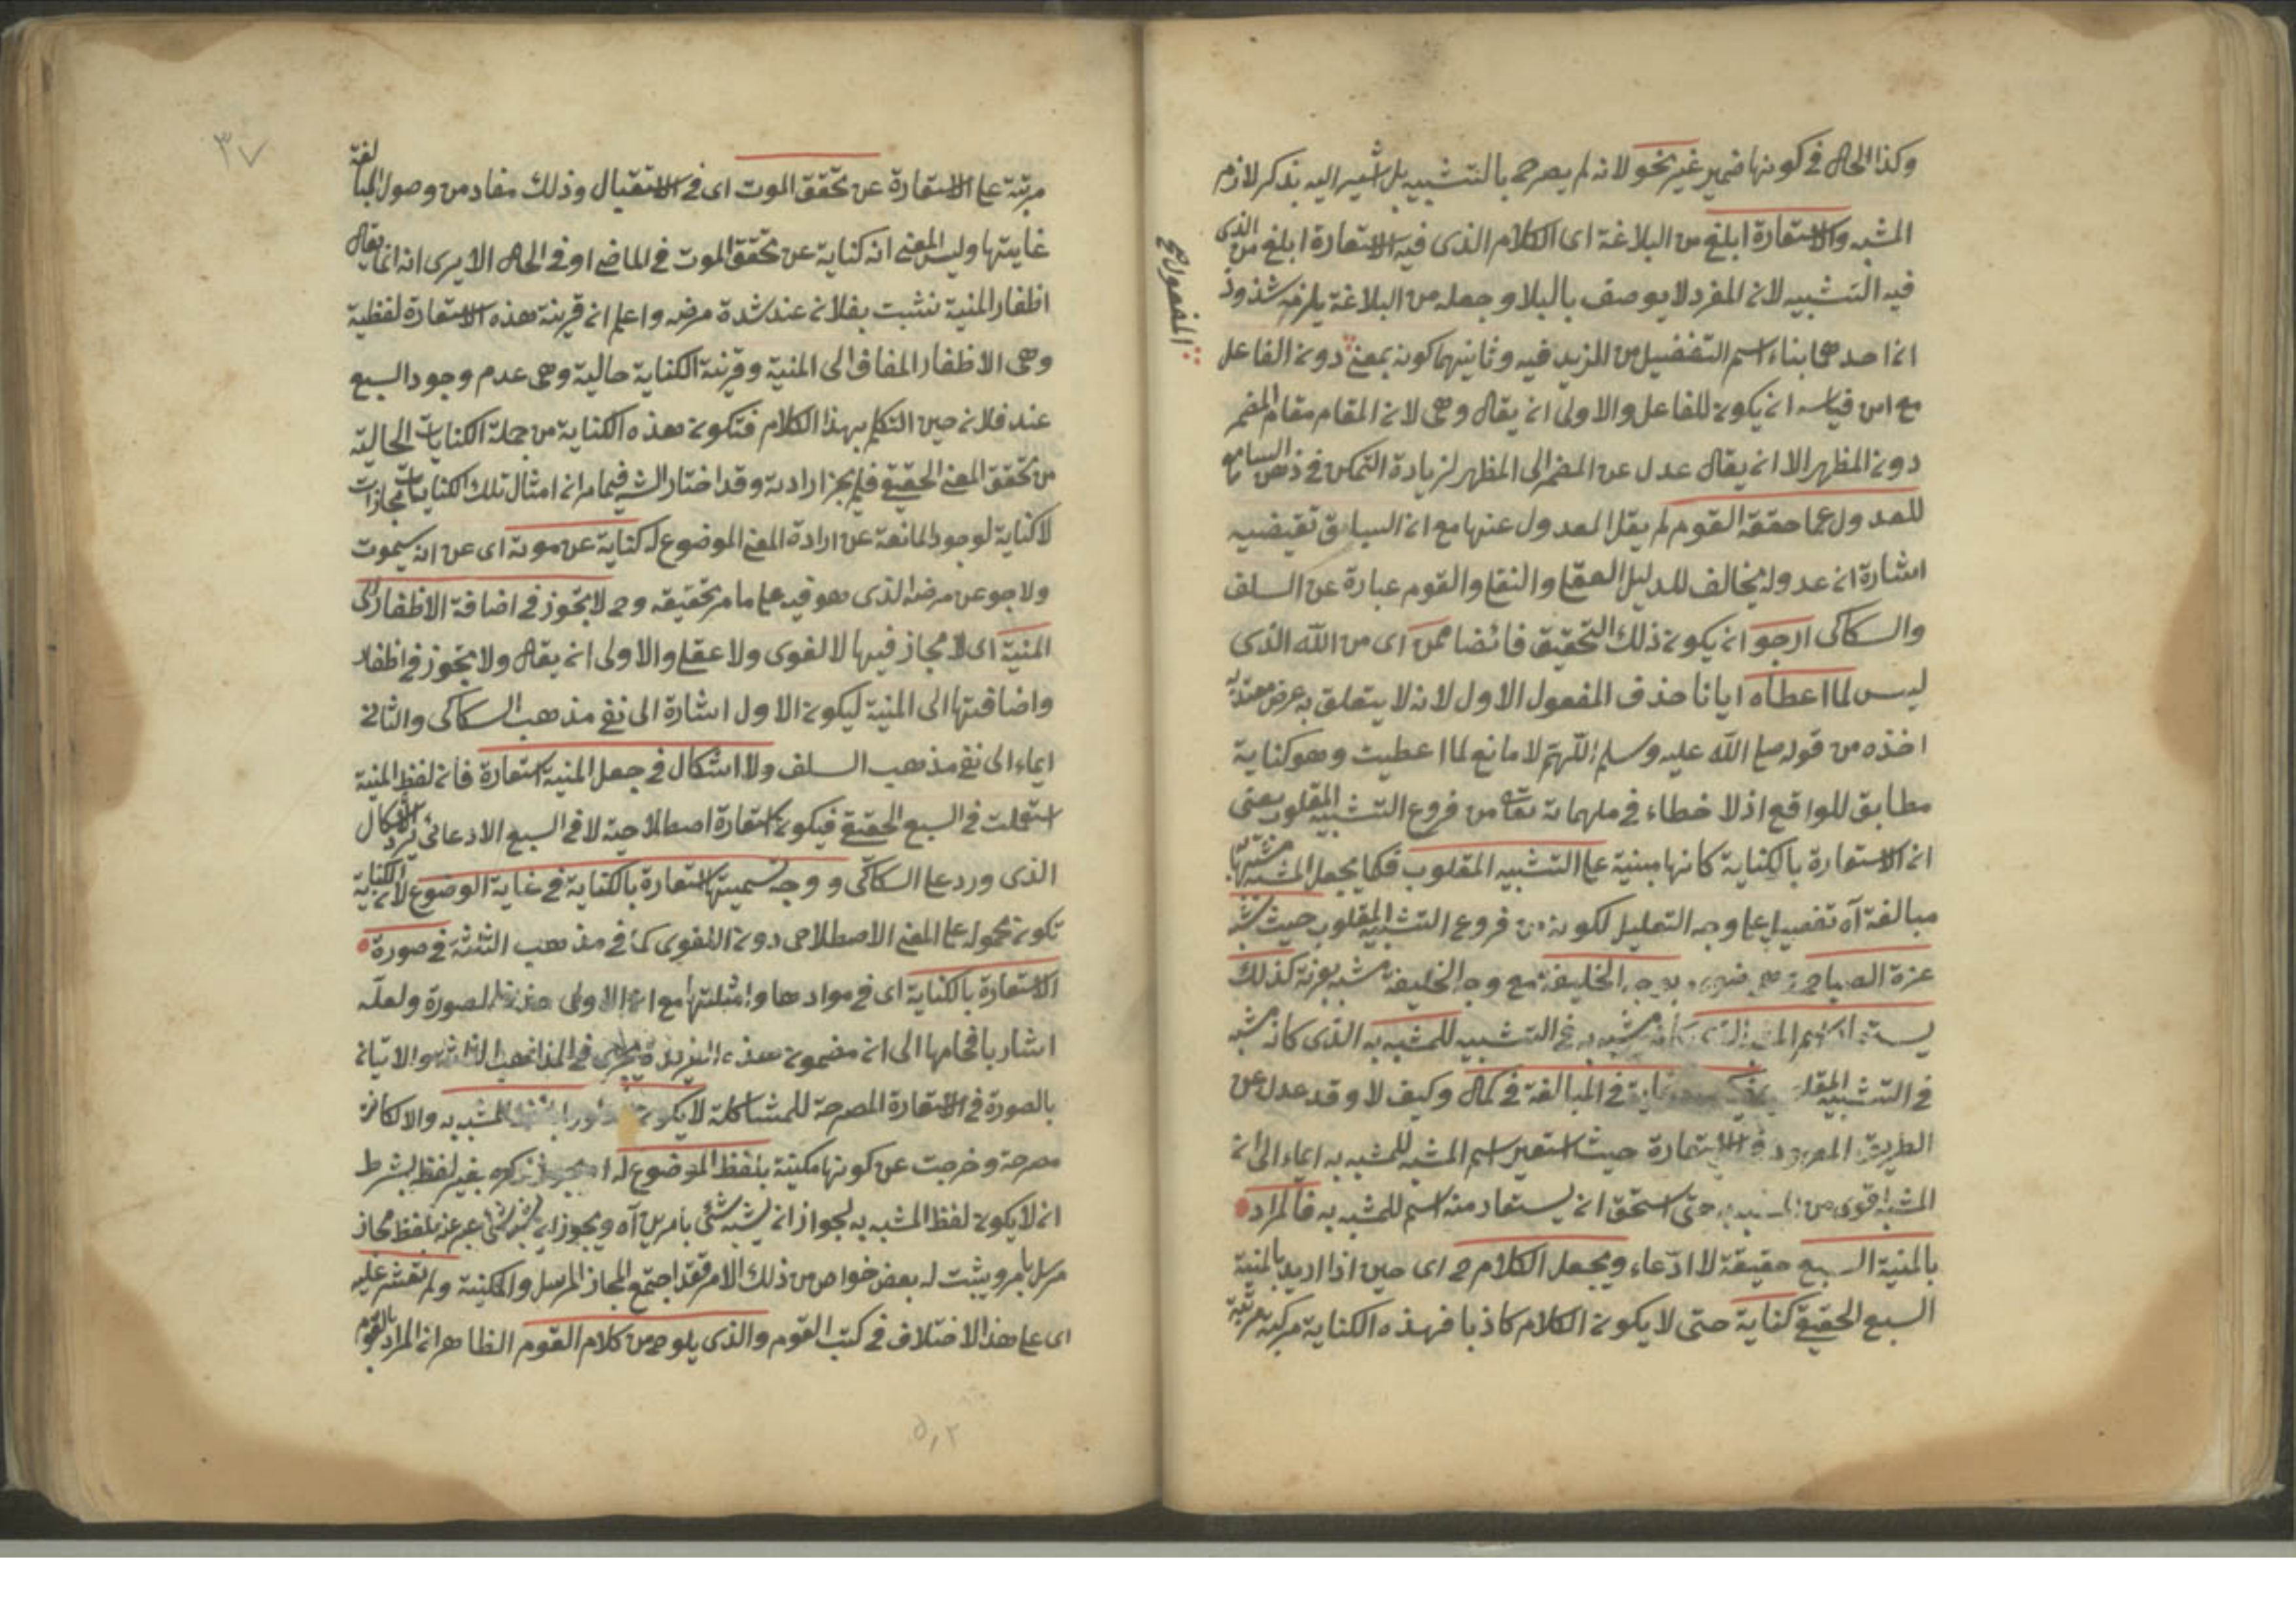 وكذا الحال في كونها ضمير غير نحو لانه لم يصرح بالتشبيه بل اشير اليه بذكر لازم
المشبه والاستعارة ابلغ من البلاغة اى الكلام الذى فيه الاستعارة ابلغ من الذى
فيه التشبيه لان المفرد لا يوصف بالبلا وجعله من البلاغة يلزمه شذوذ
ان احدهما بناء اسم التفضيل من المزيد فيه وثانيهما كونه بمعنى دون الفاعل
المفعول صح
مع ان قياسه ان يكون للفاعل والاولى ان يقال وهى لان المقام مقام المضمر
دون المظهر الا ان يقال عدل عن المضمر الى المظهر لزيادة التمكن في ذهن السامع
للعدول عما حققه القوم لم يقل المعدول عنها مع ان السياق تقتضيه
اشارة ان عدوله يخالف للدليل العقلى والنقلى والقوم عبارة عن السلف
والسكاكى ارجو ان يكون ذلك التحقيق فائضا ممن اى من الله الذى
ليس لما اعطاه ايانا حذف المفعول الاول لانه لا يتعلق به غرض معتد به
اخذه من قوله صلى الله عليه وسلم اللهم لا مانع لما اعطيت وهو كناية
مطابق للواقع اذ لا خطاء في ملهماته تعالى من فروع التشبيه المقلوب يعنى
ان الاستعارة بالكناية كانها مبنية على التشبيه المقلوب فكما يجعل المشبه مشبها به
مبالغة آه تفصيل على وجه التعليل لكونه من فروع التشبيه المقلوب حيث شبه
غرة الصباح بوجه الخليفة مع وجه الخليفة مشبه بغرته كذلك
يستعار اسم المشبه الذى كان مشبه به في التشبيه للمشبه به الذى كان مشبه
في التشبيه المقلوب غاية في المبالغة في كمال وكيف لا وقد عدل عن
الطريق المعهود في الاستعارة حيث استعير اسم المشبه للمشبه به ايماء الى ان
المشبه اقوى من المشبه به حتى استحق ان يستعار منه اسم للمشبه به فالمراد
بالمنية السبع حقيقة لا ادعاء ويجعل الكلام ح اى حين اذا اريد بالمنية
السبع الحقيقى كناية حتى لا يكون الكلام كاذبا فهذه الكناية مركبة مرتبة
٣٧
مرتبة على الاستعارة عن تحقق الموت اى في الاستقبال وذلك مفاد من وصول المبالغة
غايتها وليس المعنى انه كناية عن تحقق الموت في الماضى او في الحال الا يرى انه انما يقال
اظفار المنية نشبت بفلان عند شدة مرضه واعلم ان قرينة هذه الاستعارة لفظية
وهى الاظفار المضاف الى المنية وقرينة الكناية حالية وهى عدم وجود السبع
عند فلان حين التكلم بهذا الكلام فتكون هذه الكناية من جملة الكنايات الخالية
من تحقق المعنى الحقيقى فلم يجز ارادته وقد اختار الشه فيما مر ان امثال تلك الكنايات مجازات
لا كناية لوجود المانعة عن ارادة المعنى الموضوع له كناية عن موته اى عن انه سيموت
ولا جو عن مرضه الذى هو فيه على ما مر تحقيقه وح لا تجوز في اضافة الاظفار الى
المنية اى لا مجاز فيها لا لغوى ولا عقلى والاولى ان يقال ولا تجوز في اظفار
واضافتها الى المنية ليكون الاول اشارة الى نفى مذهب السكاكى والثانى
ايماء الى نفى مذهب السلف ولا اشكال في جعل المنية استعارة فان لفظ المنية
استعملت في السبع الحقيقى فيكون استعارة اصطلاحية لا في السبع الادعائى يرد الاشكال
الذى ورد على السكاكى ووجه تسميتها استعارة بالكناية في غاية الوضوح لان الكناية
تكون محموله على المعنى الاصطلاحى دون اللغوى كما في مذهب الثلثة في صورة
الاستعارة بالكناية اى في موادها وامثلتها مع ان الاولى حذف الصورة ولعله
اشار باقحامها الى ان مضمون هذه الفريدة يجرى في المذاهب الثلثة والاتيان
بالصورة في الاستعارة المصرحة للمشاكلة لا يكون المشبه به والا لكانت
مصرحة وخرجت عن كونها مكنية بلفظ الموضوع له ذكره بغير لفظ بشرط
ان لا يكون لفظ المشبه به لجواز ان يشبه شئ بامرين آه ويجوز ان يشبه شئ عبر عنه بلفظ مجاز
مرسل بامر ويثبت له بعض خواص من ذلك الامر فقد اجتمع المجاز المرسل والمكنية ولم تعثر عليه
اى على هذا الاختلاف في كتب القوم والذى يلوح من كلام القوم الظاهر ان المراد بالقوم